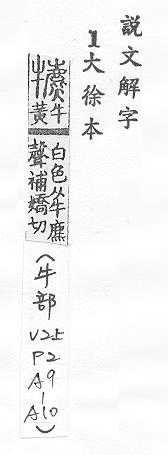 説文解字
1大徐本
犥牛黃
白色从牛麃
聲補嬌切
(牛部
V25
P2
A9
|
A10)